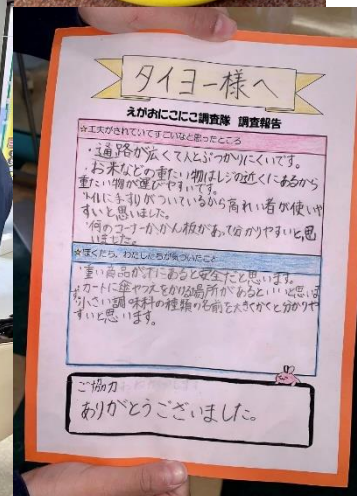 タイヨー様へ
えがおにこにこ調査隊 調査報告
☆工夫がされていてすごいなと思ったところ
・通路が広くて人とぶつかりにくいです。
・お米などの重たい物はレジの近くにあるから
重たい物が運びやすいです。
トイレに手すりがついているから高れい者が使いや
すいと思いました。
・何のコーナーかかん板があって分かりやすいと思
いました。
☆ぼくたち、わたしたちが気づいたこと
・重い商品が下にあると安全だと思います。
・カートに傘やつえをかける場所があるといいと思います
・小さい調味料の種類の名前を大きくかくと分かりや
すいと思います。
ご協力
ありがとうございました。